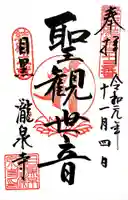 奉拝
令和元年
十一月四日
聖観世音
目黒
瀧泉寺